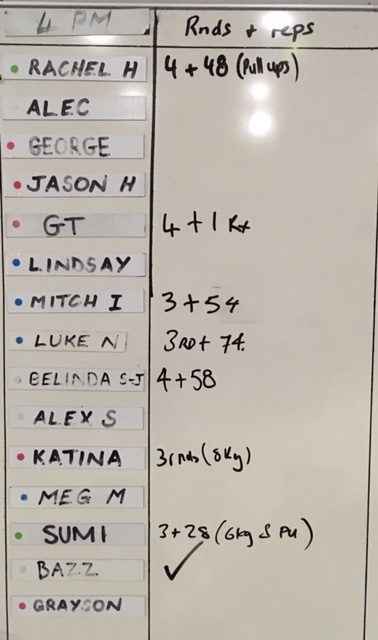 4 PM Rnds + reps
RACHEL H 4 + 48 (Pull ups)
ALEC
GEORGE
JASON H
GT 4 + 1 Rx
LINDSAY
MITCH I 3 + 54
LUKE N 3RD + 74.
BELINDA S-J 4 + 58
ALEX S
KATINA 3rnds (8kg)
MEG M
SUMI 3 + 28 (6kg & PU)
BAZZ ✓
GRAYSON